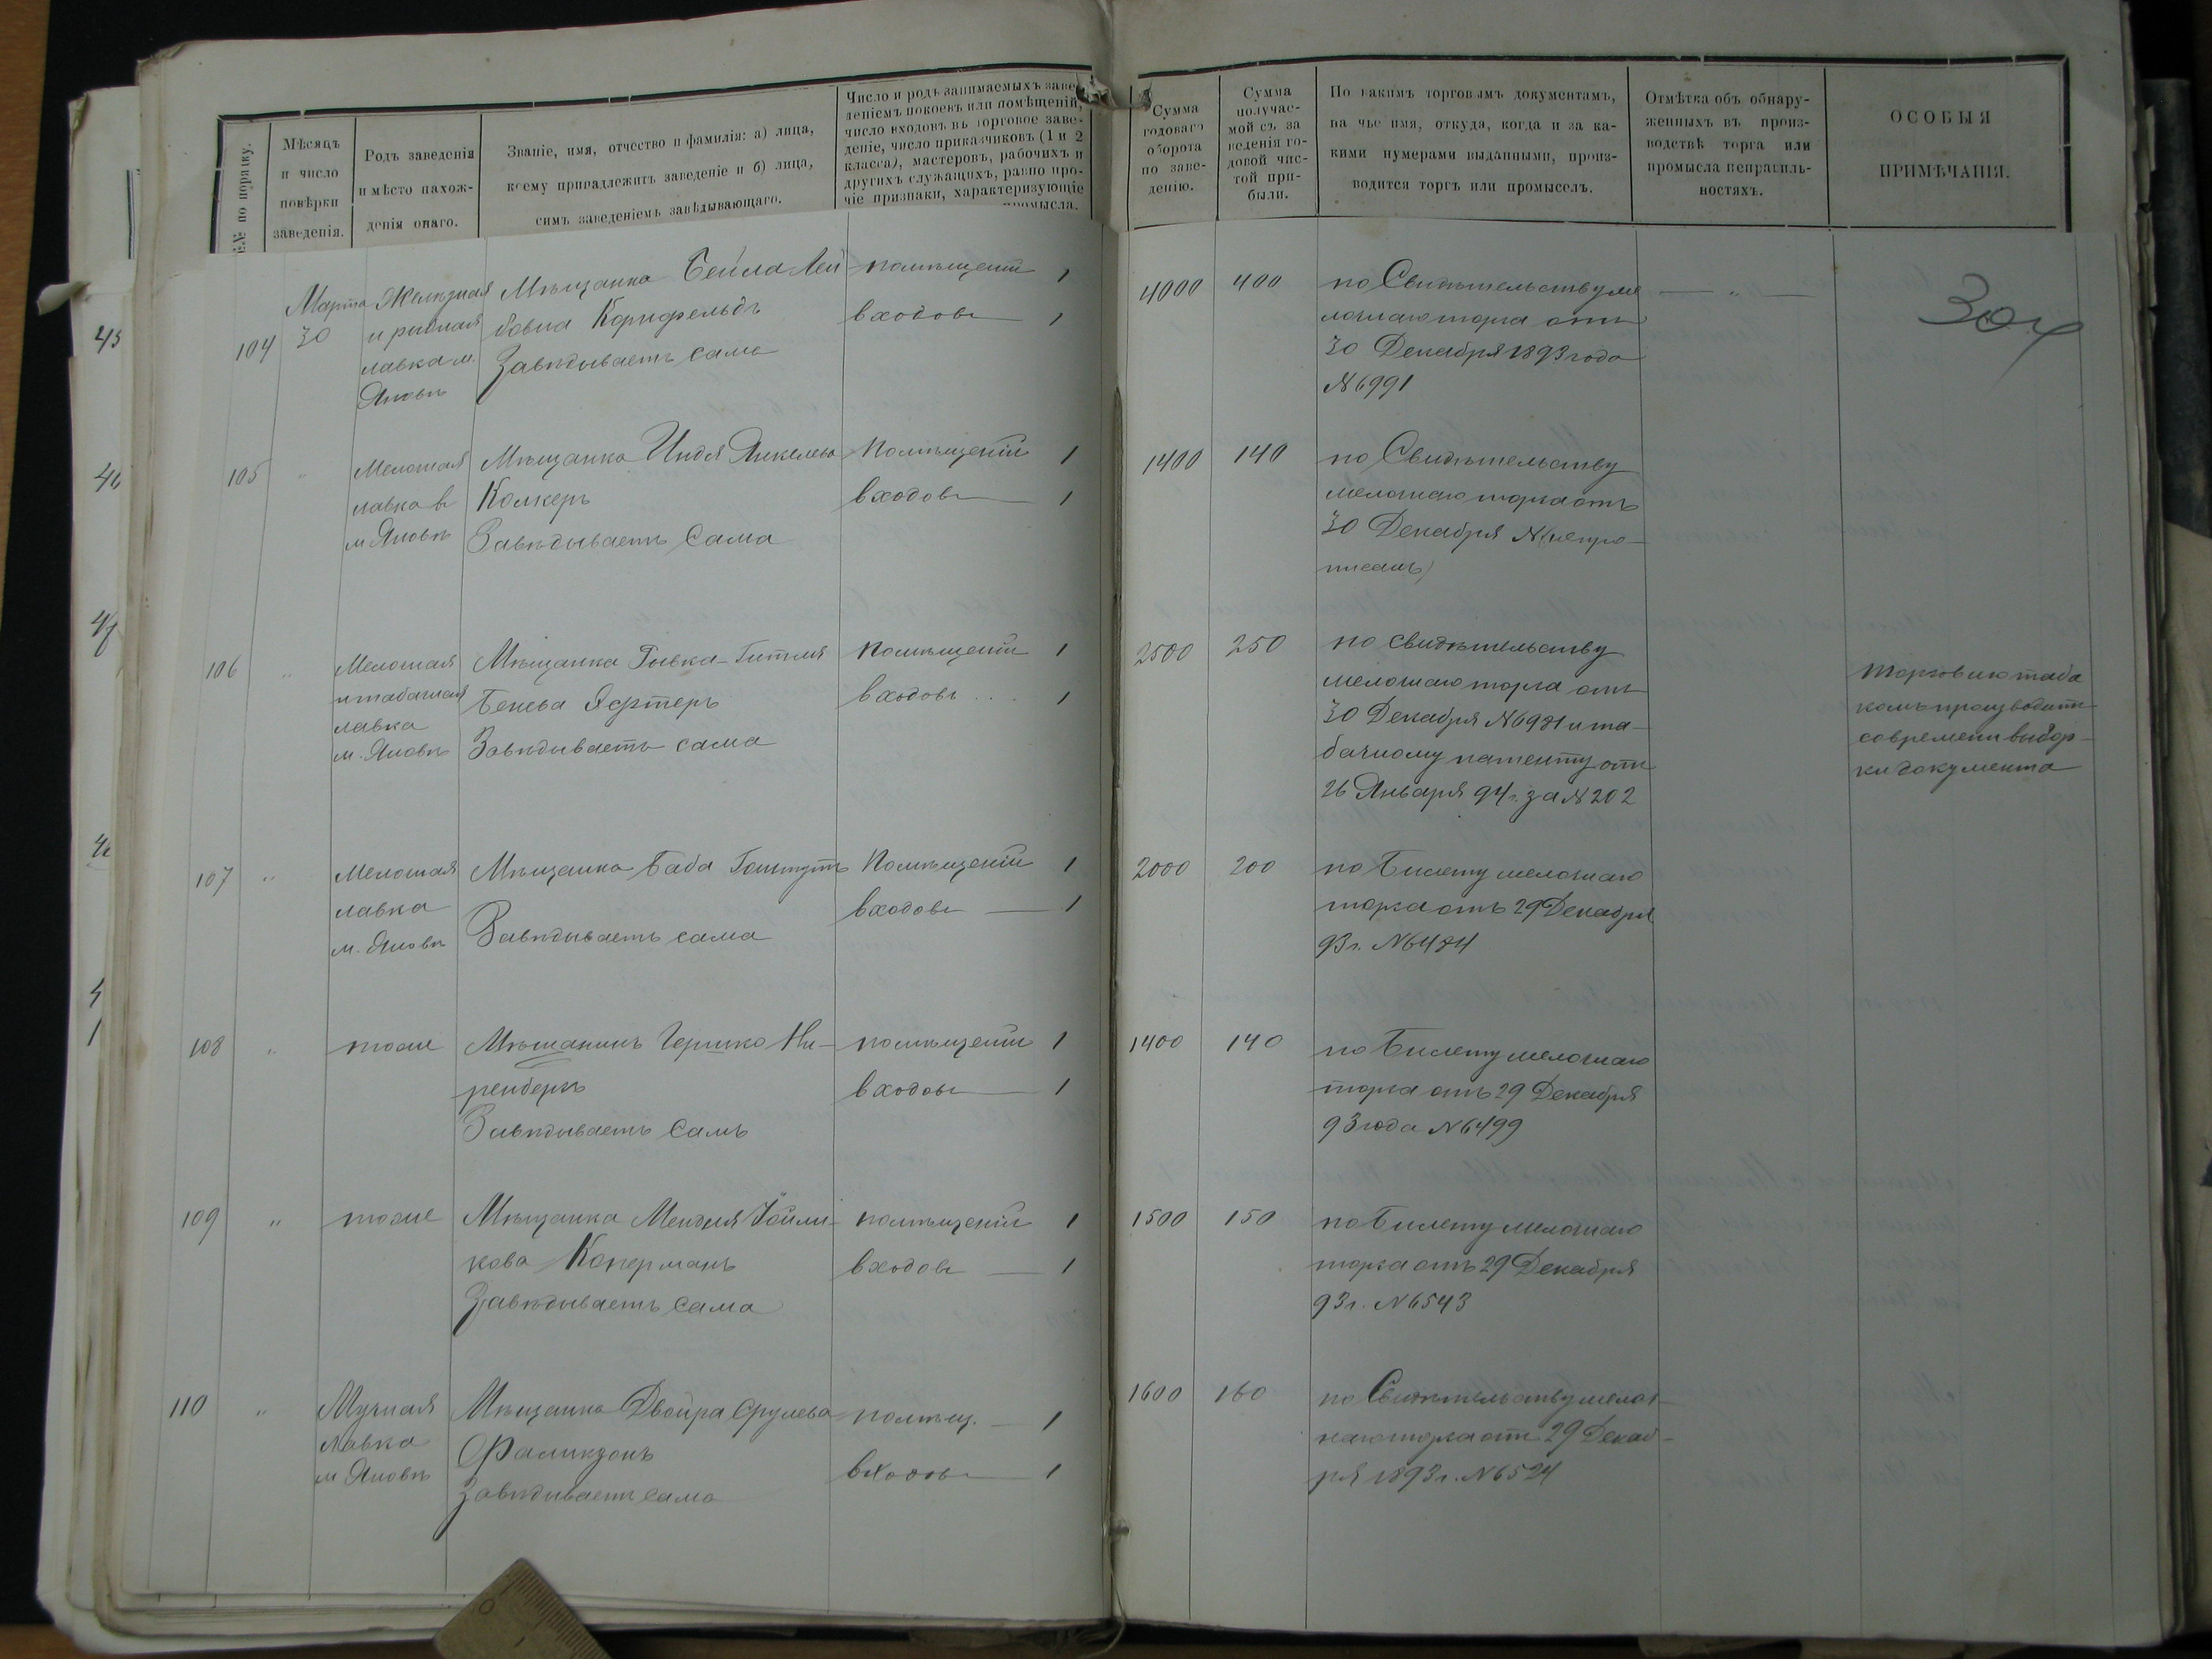 №№ по порядку.
Мѣсяцъ
и число
повѣрки
заведенія.
Родъ заведенія
и мѣсто нахож-
денія онаго.
Званіе, имя, отчество и фамилія: а) лица,
коему принадлежитъ заведеніе и б) лица,
симъ заведеніемъ завѣдывающаго.
Число и родъ занимаемыхъ заве-
деніемъ покоевъ или помѣщеній,
число входовъ въ торговое заве-
деніе, число приказчиковъ (1 и 2
класса), мастеровъ, рабочихъ и
другихъ служащихъ, равно про-
чіе признаки, характеризующіе
промысла.
Сумма
годоваго
оборота
по заве-
денію.
Сумма
получае-
мой съ за
веденія го-
довой чис-
той при-
были.
По какимъ торговымъ документамъ,
на чье имя, откуда, когда и за ка-
кими нумерами выданными, произ-
водится торгъ или промыселъ.
Отмѣтка объ обнару-
женныхъ въ произ-
водствѣ торга или
промысла неправиль-
ностяхъ.
ОСОБЫЯ
ПРИМѢЧАНІЯ.
104
Марта
30
Желѣзная
и рыбная
лавка м.
Яновъ
Мѣщанка Бейла Лей
бовна Корнфельдъ
Завѣдываетъ сама
помѣщеній 1
входовъ 1
4000
400
по Свидѣтельству ме
лочнаго торга отъ
30 Декабря 1893 года
№ 6991
— " —
105
"
Мелочная
лавка въ
м Яновѣ
Мѣщанка Индя Янкелева
Колкеръ
Завѣдываетъ Сама
Помѣщеній 1
входовъ — 1
1400
140
по Свидѣтельству
мелочнаго торга отъ
30 Декабря № (непро-
писанъ)
106
"
Мелочная
и табачная
лавка
м. Яновѣ
Мѣщанка Рывка-Гитля
Бенева
Завѣдываетъ сама
Помѣщеній 1
входовъ . . . 1
2500
250
по свидѣтельству
мелочнаго торга отъ
30 Декабря № 6981 и та-
бачному патенту отъ
26 Января 94 г. за № 202
торговлю таба
комъ производитъ
со времени выбор-
ки документа
107
"
Мелочная
лавка
м. Яновѣ
Мѣщанка Баба
Завѣдываетъ сама
Помѣщеній 1
входовъ — 1
2000
200
по Билету мелочнаго
торга отъ 29 Декабря
93 г. № 6484
108
"
тоже
Мѣщанинъ Гершко Ни-
ренбергъ
Завѣдываетъ Самъ
помѣщеній 1
входовъ — 1
1400
140
по Билету мелочнаго
торга отъ 29 Декабря
93 года № 6499
109
"
тоже
Мѣщанка Мендля
кова Коперманъ
Завѣдываетъ Сама
помѣщеній 1
входовъ — 1
1500
150
по Билету мелочнаго
торга отъ 29 Декабря
93 г. № 6543
110
"
Мучная
лавка
м Яновѣ
Мѣщанка Двойра Срулева
Фаликзонъ
Завѣдываетъ сама
помѣщ. — 1
входовъ — 1
1600
160
по Свидѣтельству мелоч-
наго торга отъ 29 Декаб-
ря 1893 г. № 6524